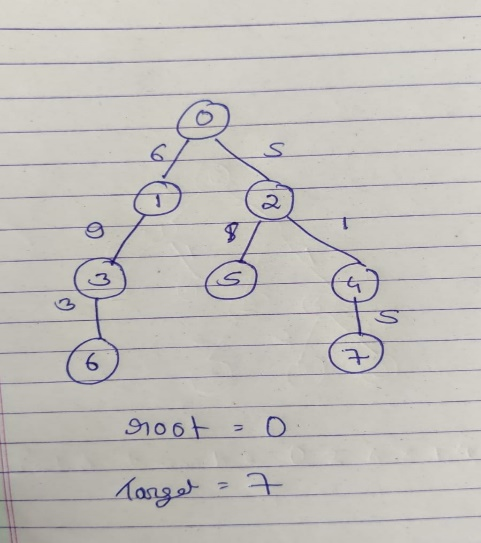 0
6 5
1 2
9 8 1
3 5 4
3 5
6 7
root = 0
Target = 7